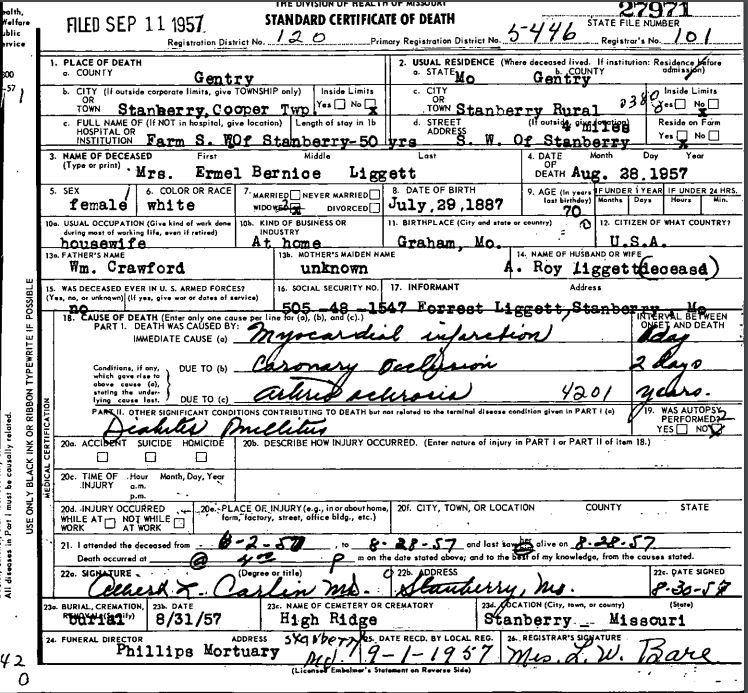 THE DIVISION OF HEALTH OF MISSOURI
FILED SEP 11 1957 STANDARD CERTIFICATE OF DEATH 27971
STATE FILE NUMBER
Registration District No. 120 Primary Registration District No. 5446 Registrar's No. 101
1. PLACE OF DEATH
a. COUNTY Gentry
2. USUAL RESIDENCE (Where deceased lived. If institution: Residence before admission)
a. STATE Mo b. COUNTY Gentry
b. CITY (If outside corporate limits, give TOWNSHIP only) OR TOWN Stanberry, Cooper Twp. Inside Limits Yes No x
c. CITY OR TOWN Stanberry Rural 0380 Inside Limits Yes No x
c. FULL NAME OF (If NOT in hospital, give location) HOSPITAL OR INSTITUTION Farm S. W Of Stanberry-50 yrs Length of stay in 1b
d. STREET ADDRESS (If outside, give location) 4 miles S. W. Of Stanberry Reside on Farm Yes x No
3. NAME OF DECEASED (Type or print) First Middle Last
Mrs. Ermel Bernice Liggett
4. DATE OF DEATH Month Day Year
Aug. 28.1957
5. SEX female
6. COLOR OR RACE white
7. MARRIED NEVER MARRIED WIDOWED x DIVORCED
8. DATE OF BIRTH July,29,1887
9. AGE (In years last birthday) 70 IF UNDER 1 YEAR Months Days IF UNDER 24 HRS. Hours Min.
10a. USUAL OCCUPATION (Give kind of work done during most of working life, even if retired) housewife
10b. KIND OF BUSINESS OR INDUSTRY At home
11. BIRTHPLACE (City and state or country) Graham, Mo.
12. CITIZEN OF WHAT COUNTRY? U.S.A.
13a. FATHER'S NAME Wm. Crawford
13b. MOTHER'S MAIDEN NAME unknown
14. NAME OF HUSBAND OR WIFE A. Roy liggett(deceasd)
15. WAS DECEASED EVER IN U. S. ARMED FORCES? (Yes, no, or unknown) (If yes, give war or dates of service) no
16. SOCIAL SECURITY NO. 505-48-1547
17. INFORMANT Address
Forrest Liggett,Stanberry, Mo
18. CAUSE OF DEATH (Enter only one cause per line for (a), (b), and (c).)
PART I. DEATH WAS CAUSED BY:
IMMEDIATE CAUSE (a) Myocardial infarction
INTERVAL BETWEEN ONSET AND DEATH
1 day
Conditions, if any, which gave rise to above cause (a), stating the underlying cause last.
DUE TO (b) Coronary Occlusion 2 days
DUE TO (c) 4201 years.
PART II. OTHER SIGNIFICANT CONDITIONS CONTRIBUTING TO DEATH but not related to the terminal disease condition given in PART I (a)
Diabetes Mellitus
19. WAS AUTOPSY PERFORMED? 2
YES NO X
20a. ACCIDENT SUICIDE HOMICIDE
20b. DESCRIBE HOW INJURY OCCURRED. (Enter nature of injury in PART I or PART II of item 18.)
20c. TIME OF INJURY Hour a.m. p.m. Month, Day, Year
20d. INJURY OCCURRED WHILE AT WORK NOT WHILE AT WORK
20e. PLACE OF INJURY (e.g., in or about home, farm, factory, street, office bldg., etc.)
20f. CITY, TOWN, OR LOCATION COUNTY STATE
21. I attended the deceased from 6-2-57, to 8-28-57 and last saw her alive on 8-28-57
Death occurred at @ 4 00 P m on the date stated above; and to the best of my knowledge, from the causes stated.
22a. SIGNATURE (Degree or title) Albert L. Carlin Md.
22b. ADDRESS Stanberry, Mo.
22c. DATE SIGNED 8-30-57
23a. BURIAL, CREMATION, REMOVAL (Specify) burial
23b. DATE 8/31/57
23c. NAME OF CEMETERY OR CREMATORY High Ridge
23d. LOCATION (City, town, or county) (State) Stanberry Missouri
24. FUNERAL DIRECTOR ADDRESS
Phillips Mortuary Stanberry Mo.
25. DATE RECD. BY LOCAL REG. 9-1-1957
26. REGISTRAR'S SIGNATURE Mrs. L. W. Bare
(Licensed Embalmer's Statement on Reverse Side)
MEDICAL CERTIFICATION
USE ONLY BLACK INK OR RIBBON TYPEWRITE IF POSSIBLE
All diseases in Part I must be causally related.
42
0